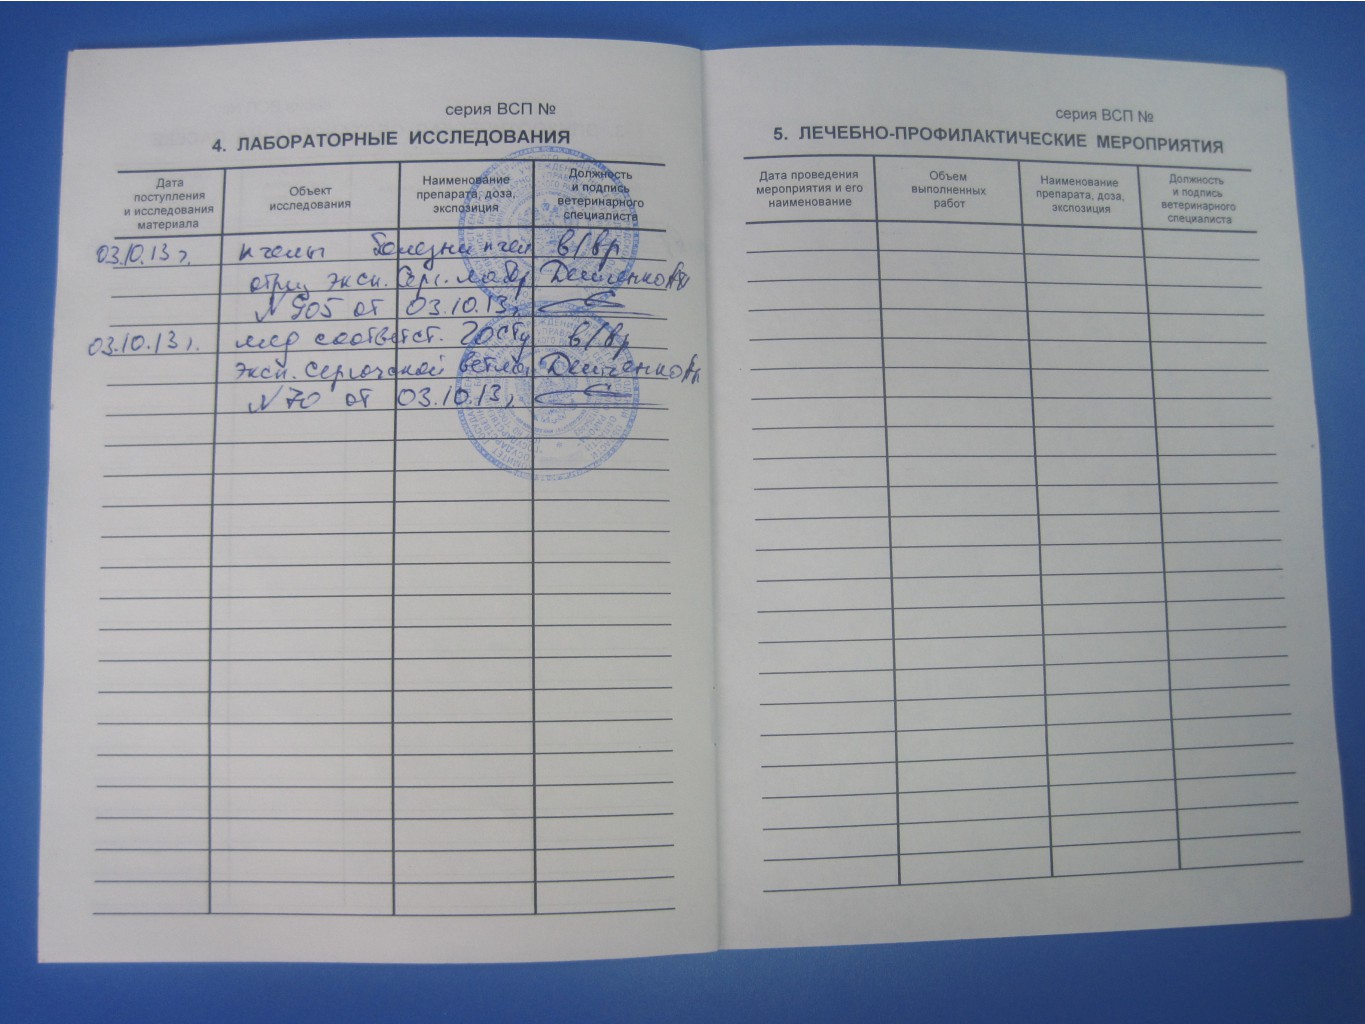 серия ВСП №
4. ЛАБОРАТОРНЫЕ ИССЛЕДОВАНИЯ
Дата поступления и исследования материала
Объект исследования
Наименование препарата, доза, экспозиция
Должность и подпись ветеринарного специалиста
03.10.13 г. пчелы болезни пчел в/вр
отриц эксп. Серг. лабор
N 905 от 03.10.13г
03.10.13 г. мед соответст. Госту в/вр
эксп. Сергачской ветлаб
N 70 от 03.10.13г
серия ВСП №
5. ЛЕЧЕБНО-ПРОФИЛАКТИЧЕСКИЕ МЕРОПРИЯТИЯ
Дата проведения мероприятия и его наименование
Объем выполненных работ
Наименование препарата, доза, экспозиция
Должность и подпись ветеринарного специалиста